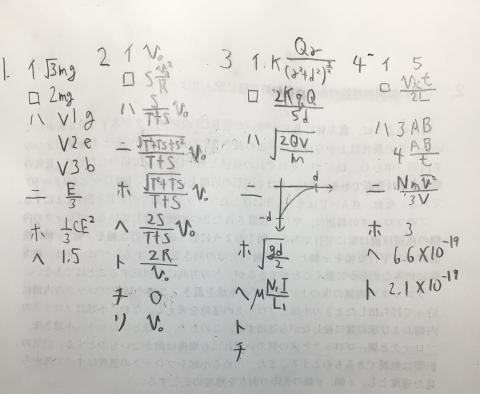 1. イ √3mg
ロ 2mg
ハ V1 g
V2 e
V3 b
ニ E/3
ホ 1/3 CE²
ヘ 1.5
2 イ V₀
ロ
ハ S/(T+S) V₀
ニ √(T²+TS+S²)/(T+S) V₀
ホ
ヘ 2S/(T+S) V₀
ト 2R/V₀
チ 0
リ V₀
3 イ. K
ロ 2KqQ/5d
ハ √(2QV/M)
ニ d -d
ホ √(gd/2)
ヘ μ N₁I/L₁
ト
チ
4 イ 5
ロ Vxt/2L
ハ 3 AB
4 AB/t
ニ Nmv̄²/3V
ホ 3
ヘ 6.6×10⁻¹⁹
ト 2.1×10⁻¹⁸